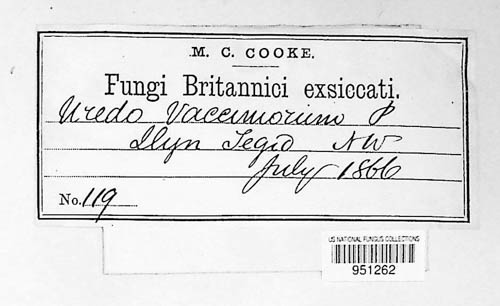 M. C. COOKE.
Fungi Britannici exsiccati.
Uredo Vacciniorum P
Llyn Tegid NW
July 1866
No. 119
US NATIONAL FUNGUS COLLECTIONS
951262